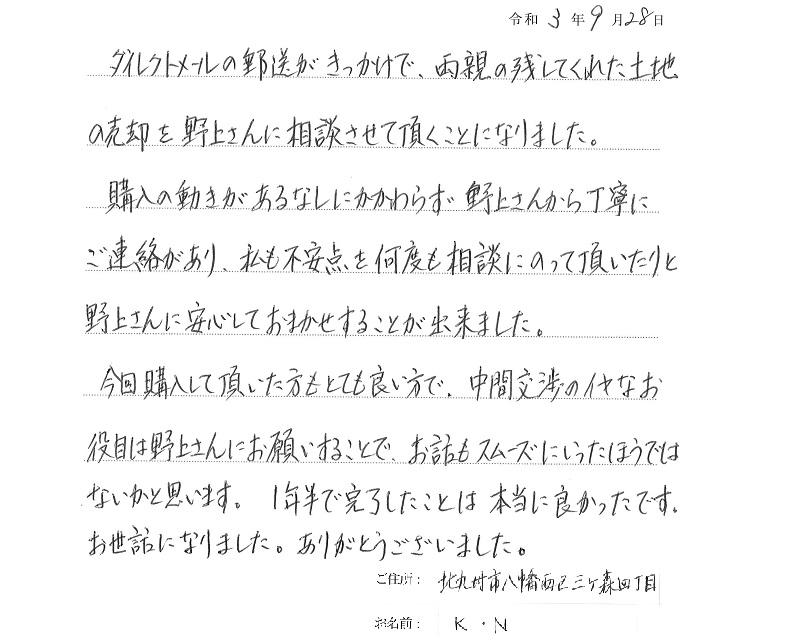 令和 3 年 9 月 28 日
ダイレクトメールの郵送がきっかけで、両親の残してくれた土地
の売却を野上さんに相談させて頂くことになりました。
購入の動きがあるなしにかかわらず野上さんから丁寧に
ご連絡があり、私も不安点を何度も相談にのって頂いたりと
野上さんに安心しておまかせすることが出来ました。
今回購入して頂いた方もとても良い方で、中間交渉のイヤなお
役目は野上さんにお願いすることで、お話もスムーズにいったほうでは
ないかと思います。 1年半で完了したことは本当に良かったです。
お世話になりました。ありがとうございました。
ご住所: 北九州市八幡西区三ケ森四丁目
お名前: K・N